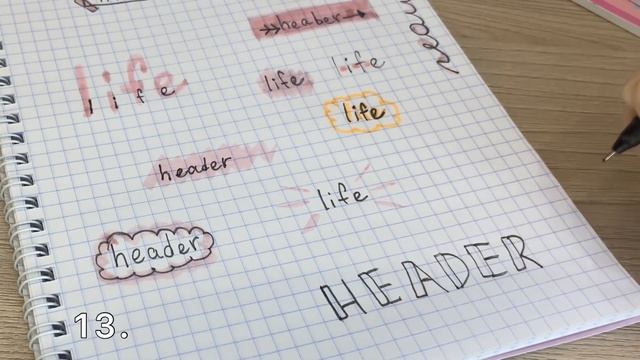 heaber
life
life
life
life
life
header
life
header
HEADER
13.